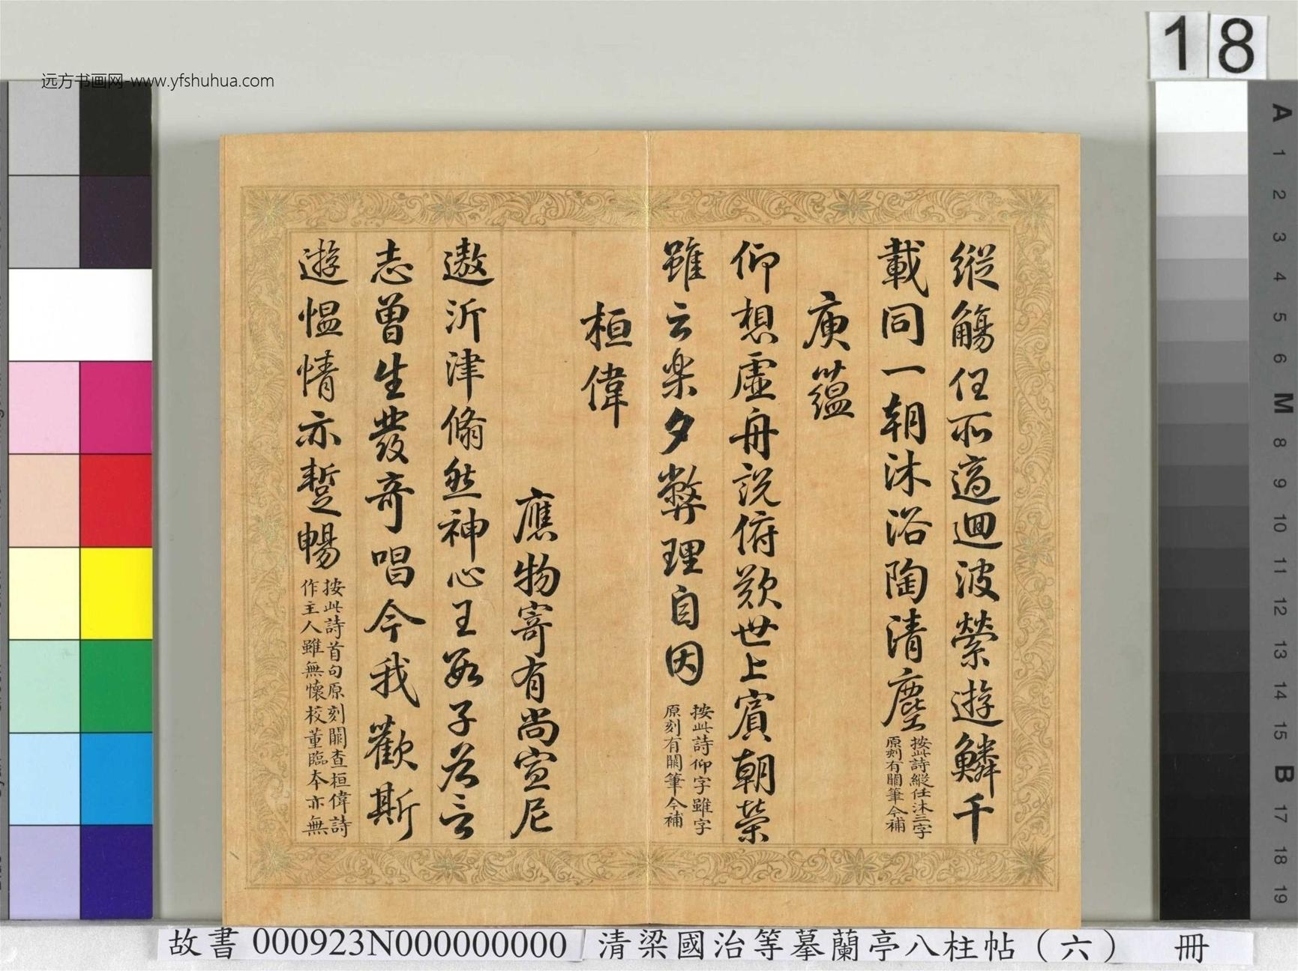 远方书画网-www.yfshuhua.com
18
縱觴任所適迴波縈遊鱗千
載同一朝沐浴陶清塵
按此詩縱任沐三字
原刻有闕筆今補
庾蘊
仰想虛舟説俯歎世上賓朝榮
雖云樂夕弊理自因
按此詩仰字雖字
原刻有闕筆今補
桓偉
應物寄有尚宣尼
遨沂津翛然神心王數子各言
志曾生發奇唱今我歡斯
遊慍情亦蹔暢
按此詩首句原刻闕查桓偉詩
作主人雖無懷校董臨本亦無
A
1
2
3
4
5
6
M
8
9
10
11
12
13
14
15
B
17
18
19
故書 000923N000000000 清梁國治等摹蘭亭八柱帖（六） 冊